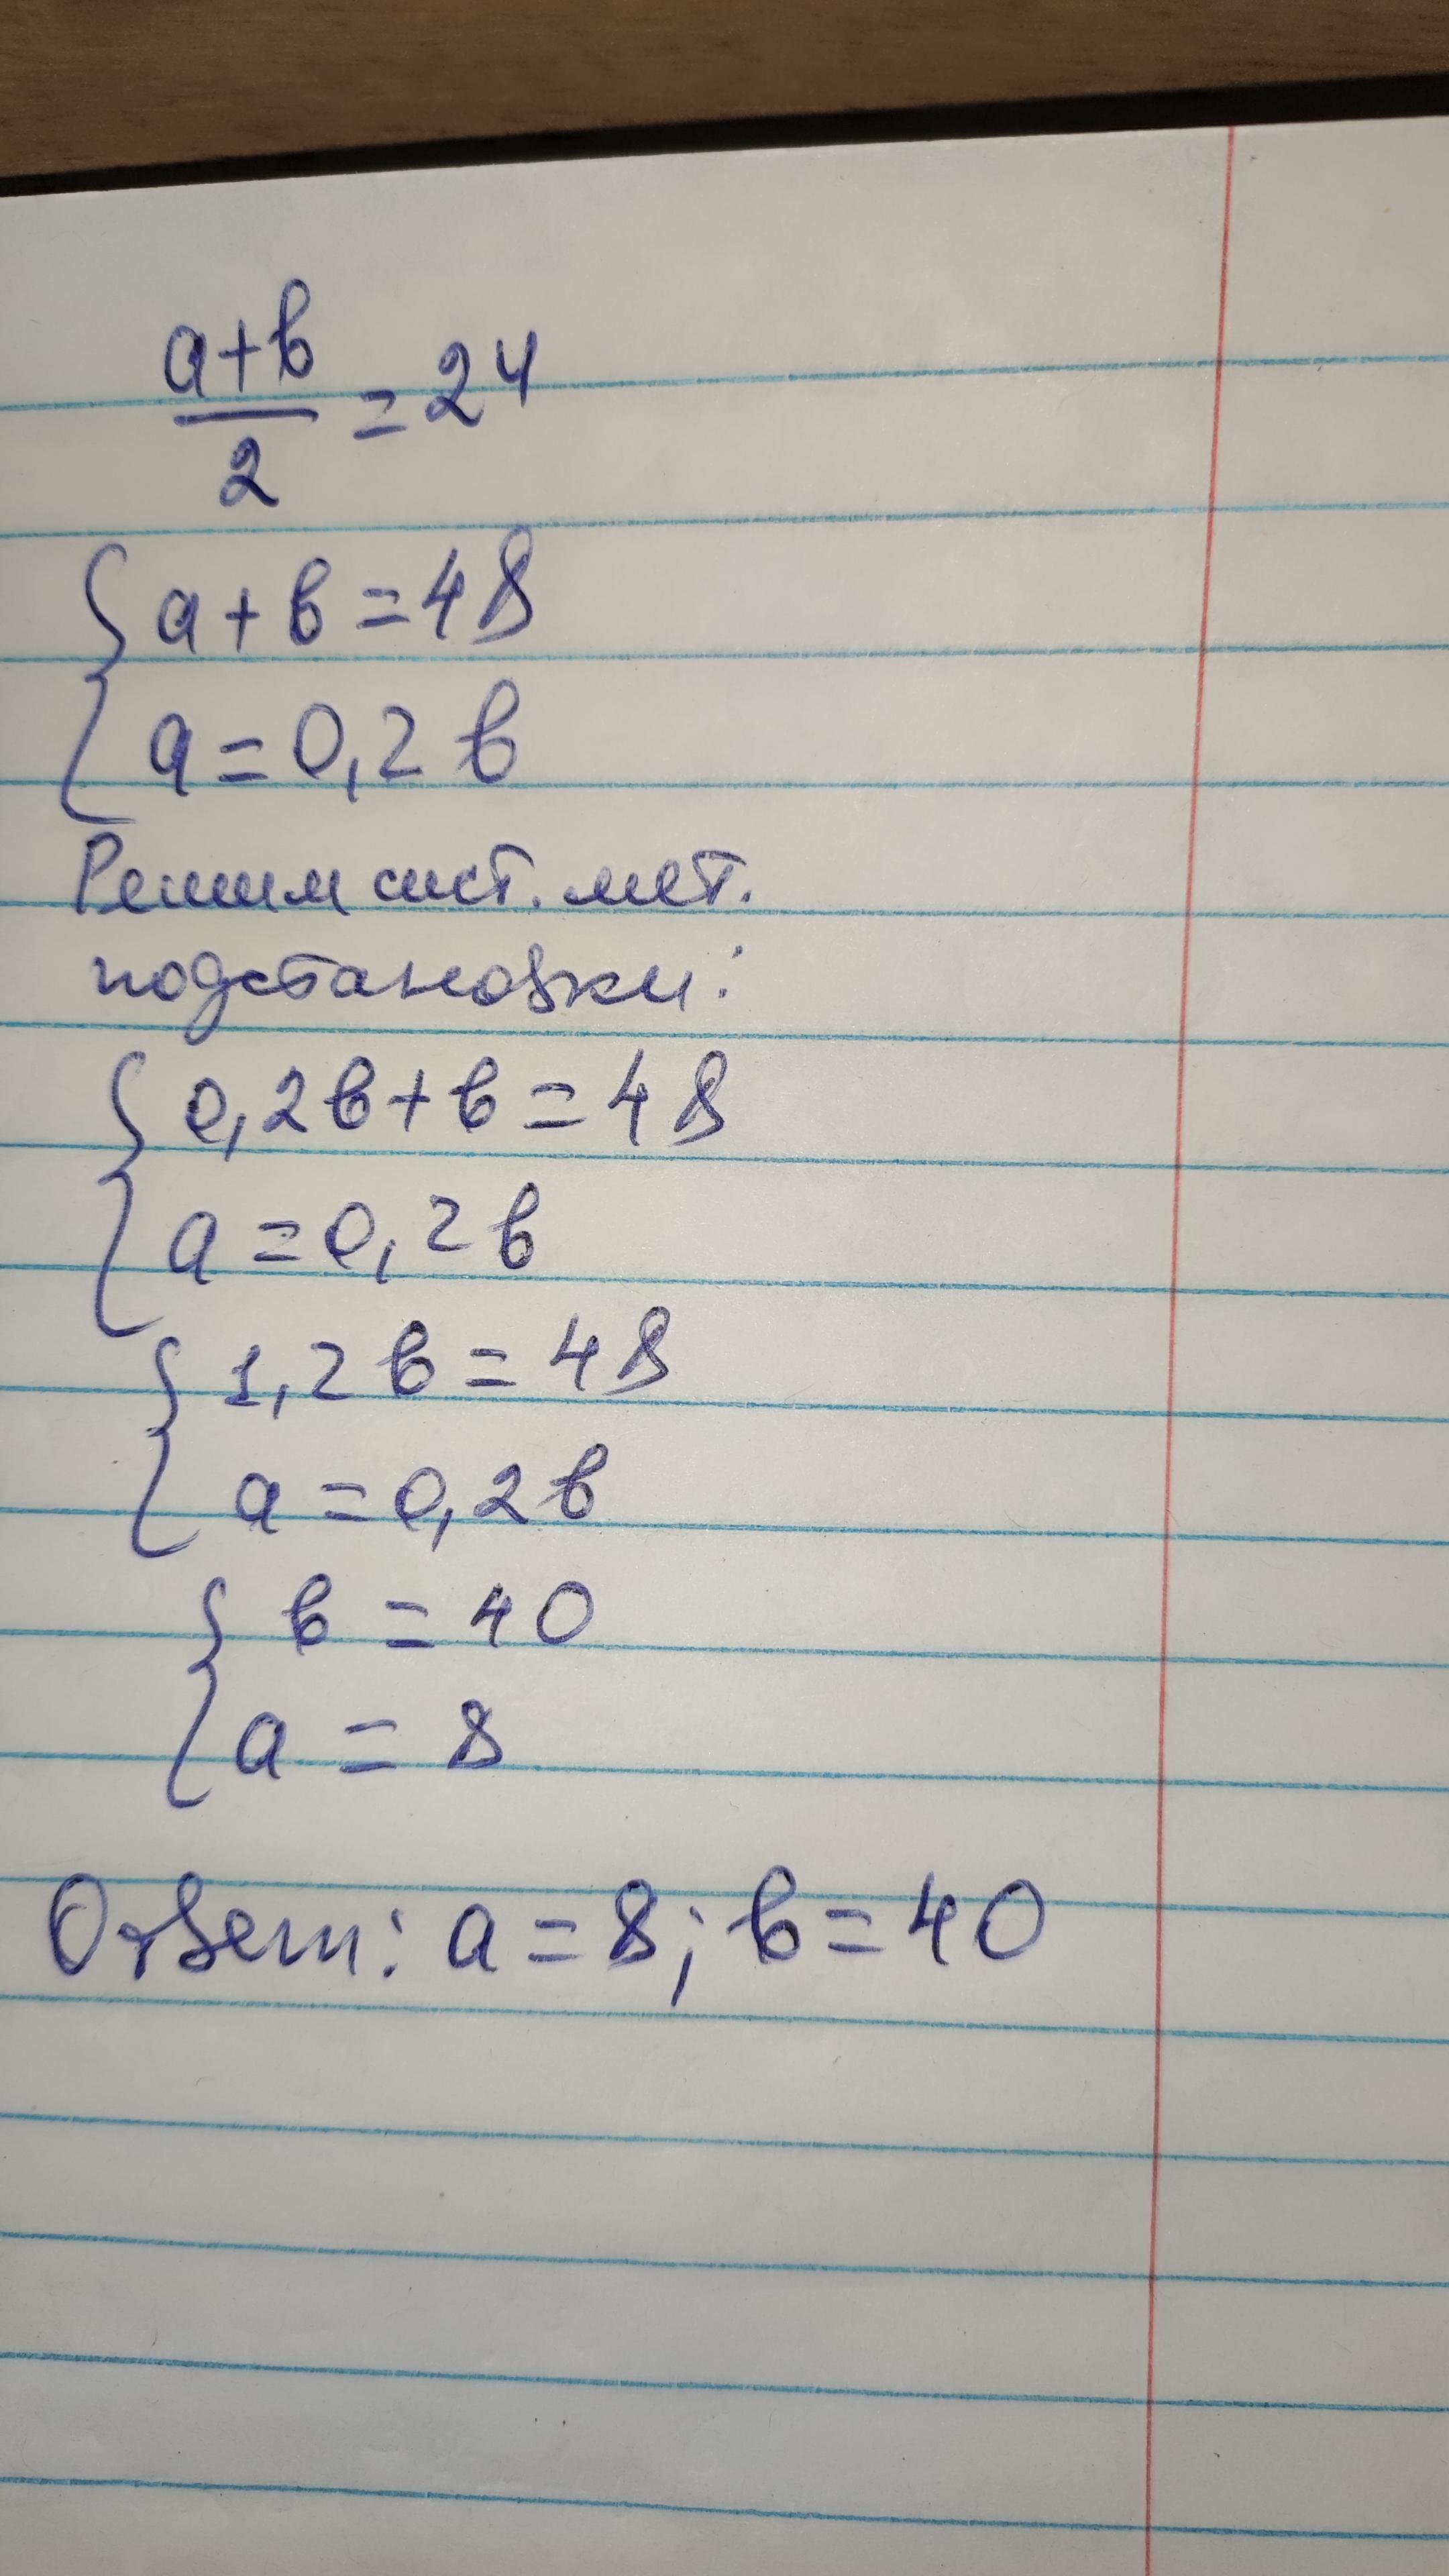 a+b
2
=24
{a+b=48
a=0,2b
Решим сист. мет.
подстановки:
{0,2b+b=48
a=0,2b
{1,2b=48
a=0,2b
{b=40
a=8
Ответ: a=8; b=40